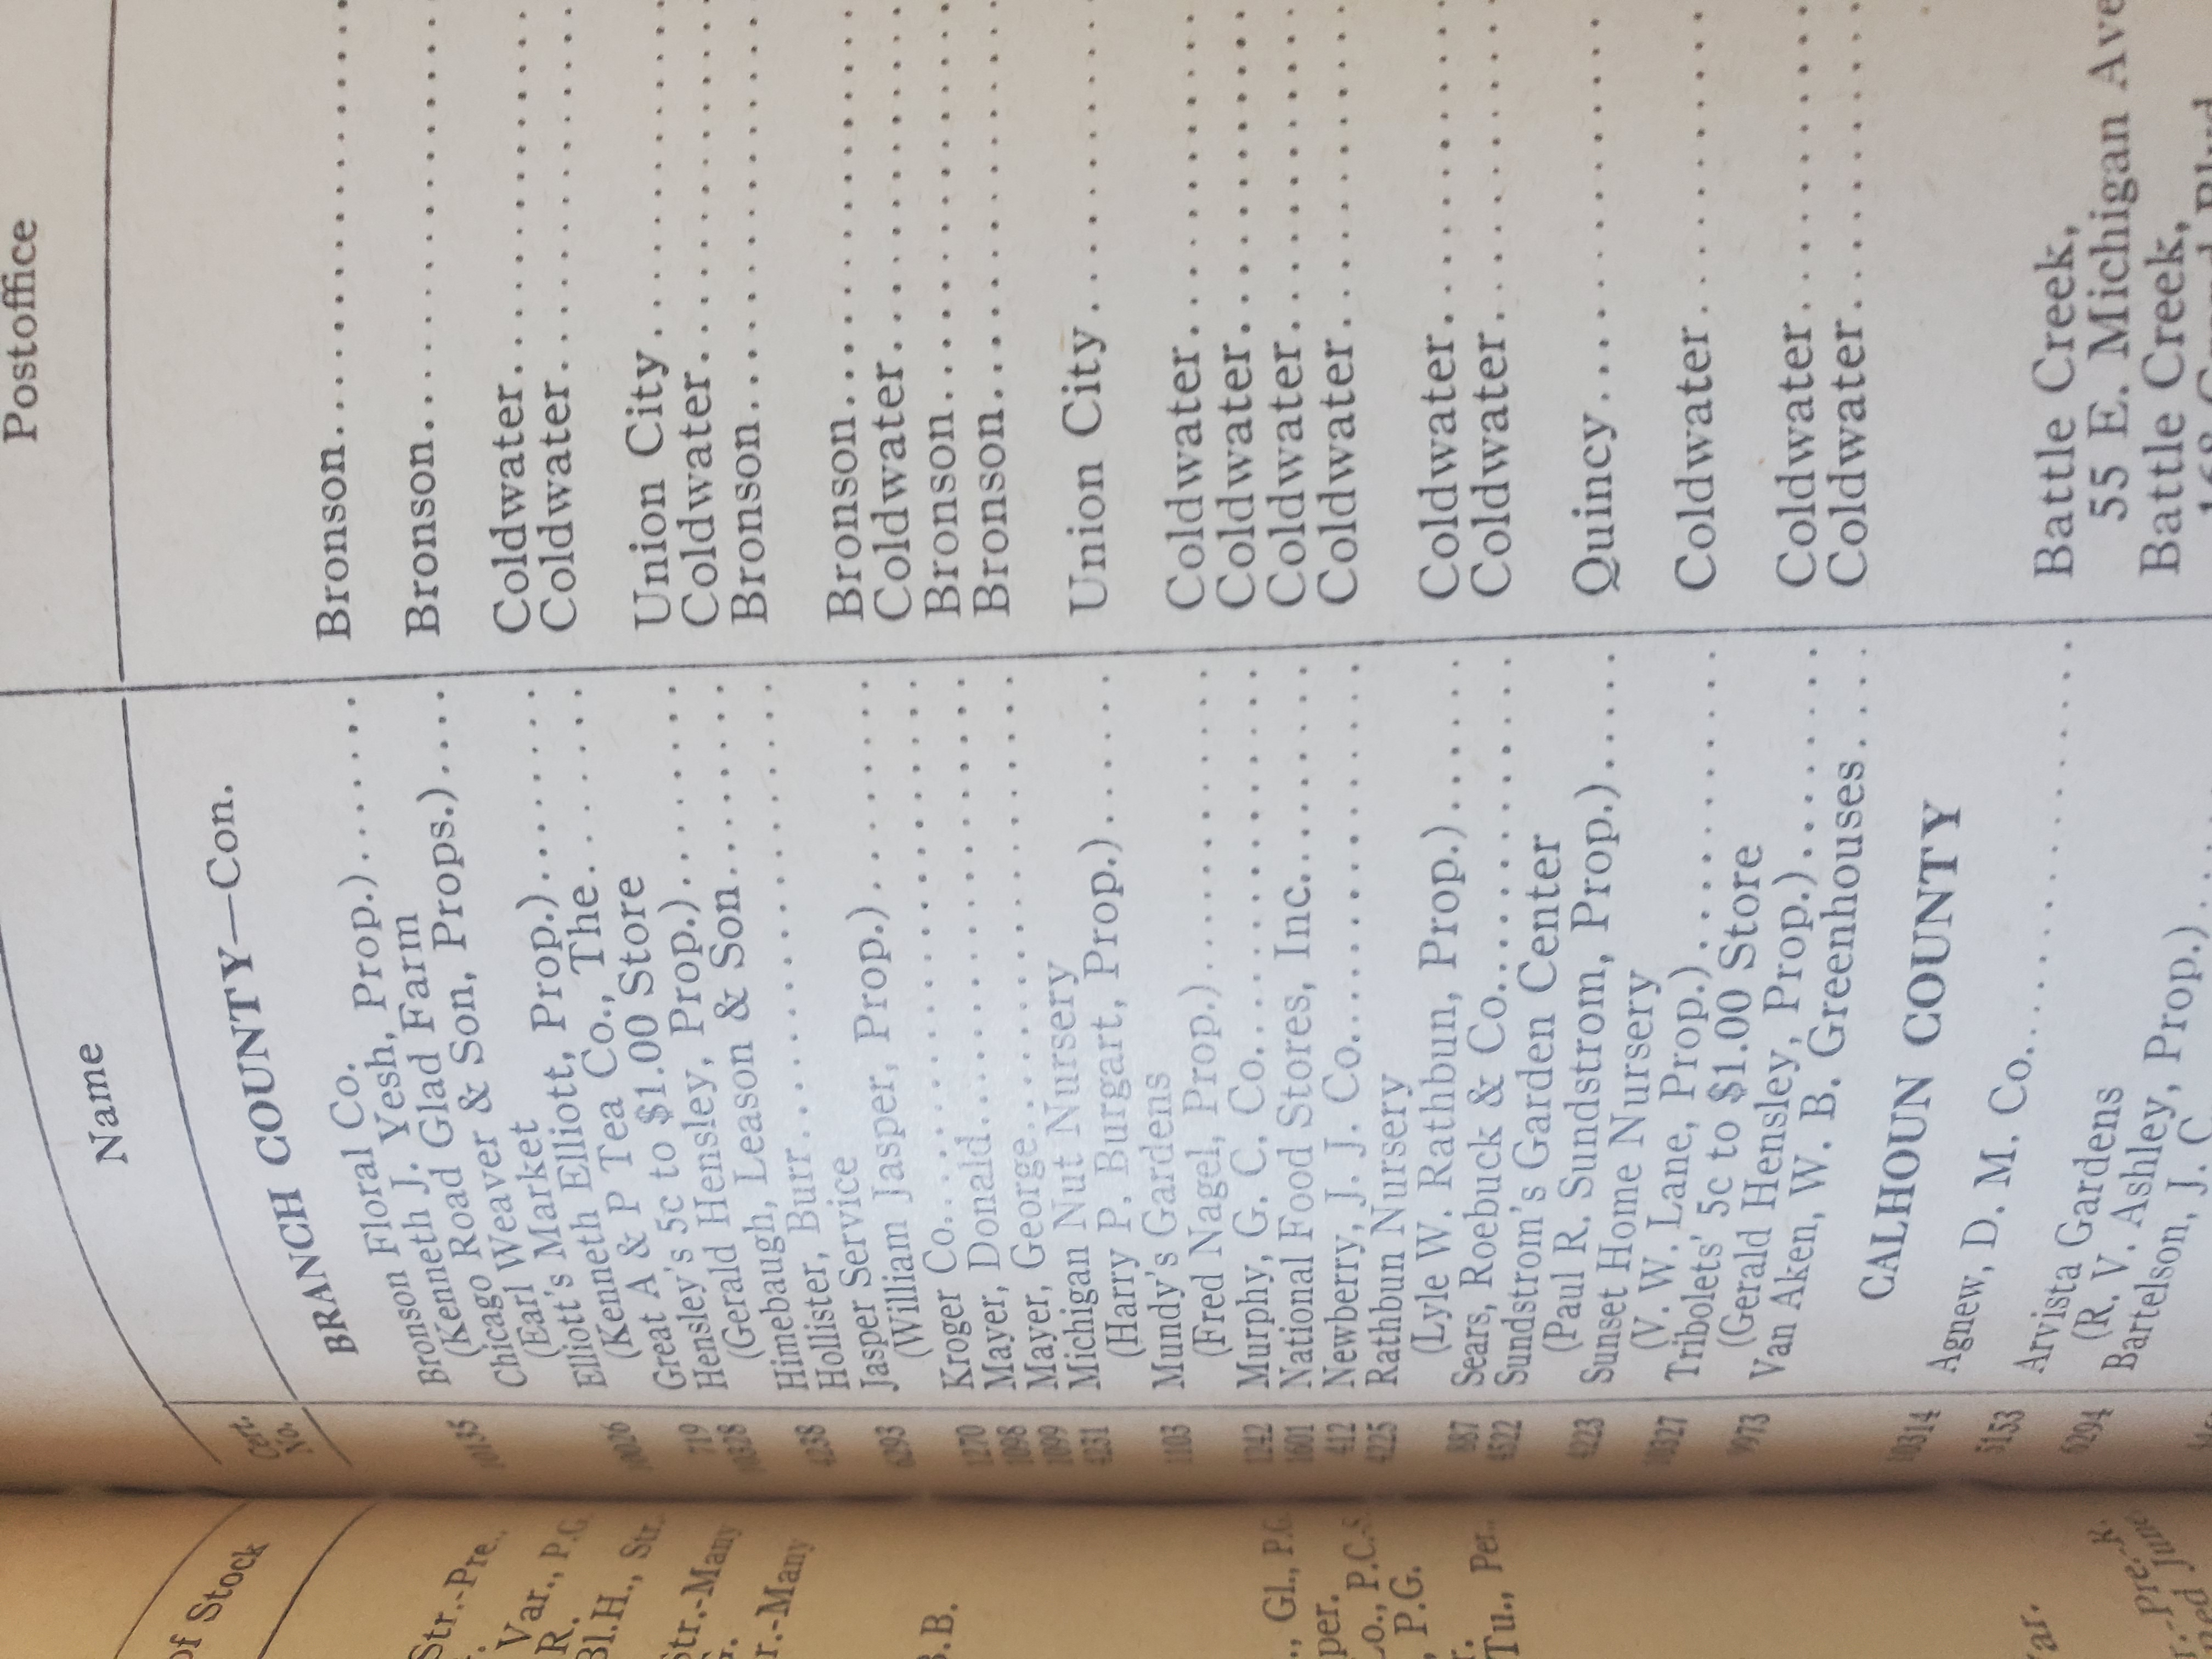 Cert. No.
Name
Postoffice
BRANCH COUNTY—Con.
Bronson Floral Co.
(Kenneth J. Yesh, Prop.)....... Bronson....
Chicago Road Glad Farm
(Earl Weaver & Son, Props.).... Bronson....
Elliott's Market
(Kenneth Elliott, Prop.)....... Coldwater....
719 Great A & P Tea Co., The....... Coldwater....
10328 Hensley's 5c to $1.00 Store
(Gerald Hensley, Prop.)....... Union City....
4238 Himebaugh, Leason & Son....... Coldwater....
Hollister, Burr....... Bronson....
6293 Jasper Service
(William Jasper, Prop.)....... Bronson....
1270 Kroger Co....... Coldwater....
1098 Mayer, Donald....... Bronson....
1099 Mayer, George....... Bronson....
4231 Michigan Nut Nursery
(Harry P. Burgart, Prop.)....... Union City....
1103 Mundy's Gardens
(Fred Nagel, Prop.)....... Coldwater....
1242 Murphy, G. C. Co....... Coldwater....
1601 National Food Stores, Inc....... Coldwater....
412 Newberry, J. J. Co....... Coldwater....
4225 Rathbun Nursery
(Lyle W. Rathbun, Prop.)....... Coldwater....
887 Sears, Roebuck & Co....... Coldwater....
4522 Sundstrom's Garden Center
(Paul R. Sundstrom, Prop.)..... Quincy....
4223 Sunset Home Nursery
(V. W. Lane, Prop.)....... Coldwater....
10327 Tribolets' 5c to $1.00 Store
(Gerald Hensley, Prop.)....... Coldwater....
9973 Van Aken, W. B. Greenhouses.... Coldwater....
CALHOUN COUNTY
10314 Agnew, D. M. Co....... Battle Creek,
55 E. Michigan Ave
5153 Arvista Gardens
(R. V. Ashley, Prop.)... Battle Creek,
6294 Bartelson, J. C.
of Stock
Str.-Pre.
Var., P.G.
R.
Bl.H., Str.
Str.-Many
r.-Many
.B.
, Gl., P.G.
per.
Co., P.C.-S.
, P.G.
Tu., Per.